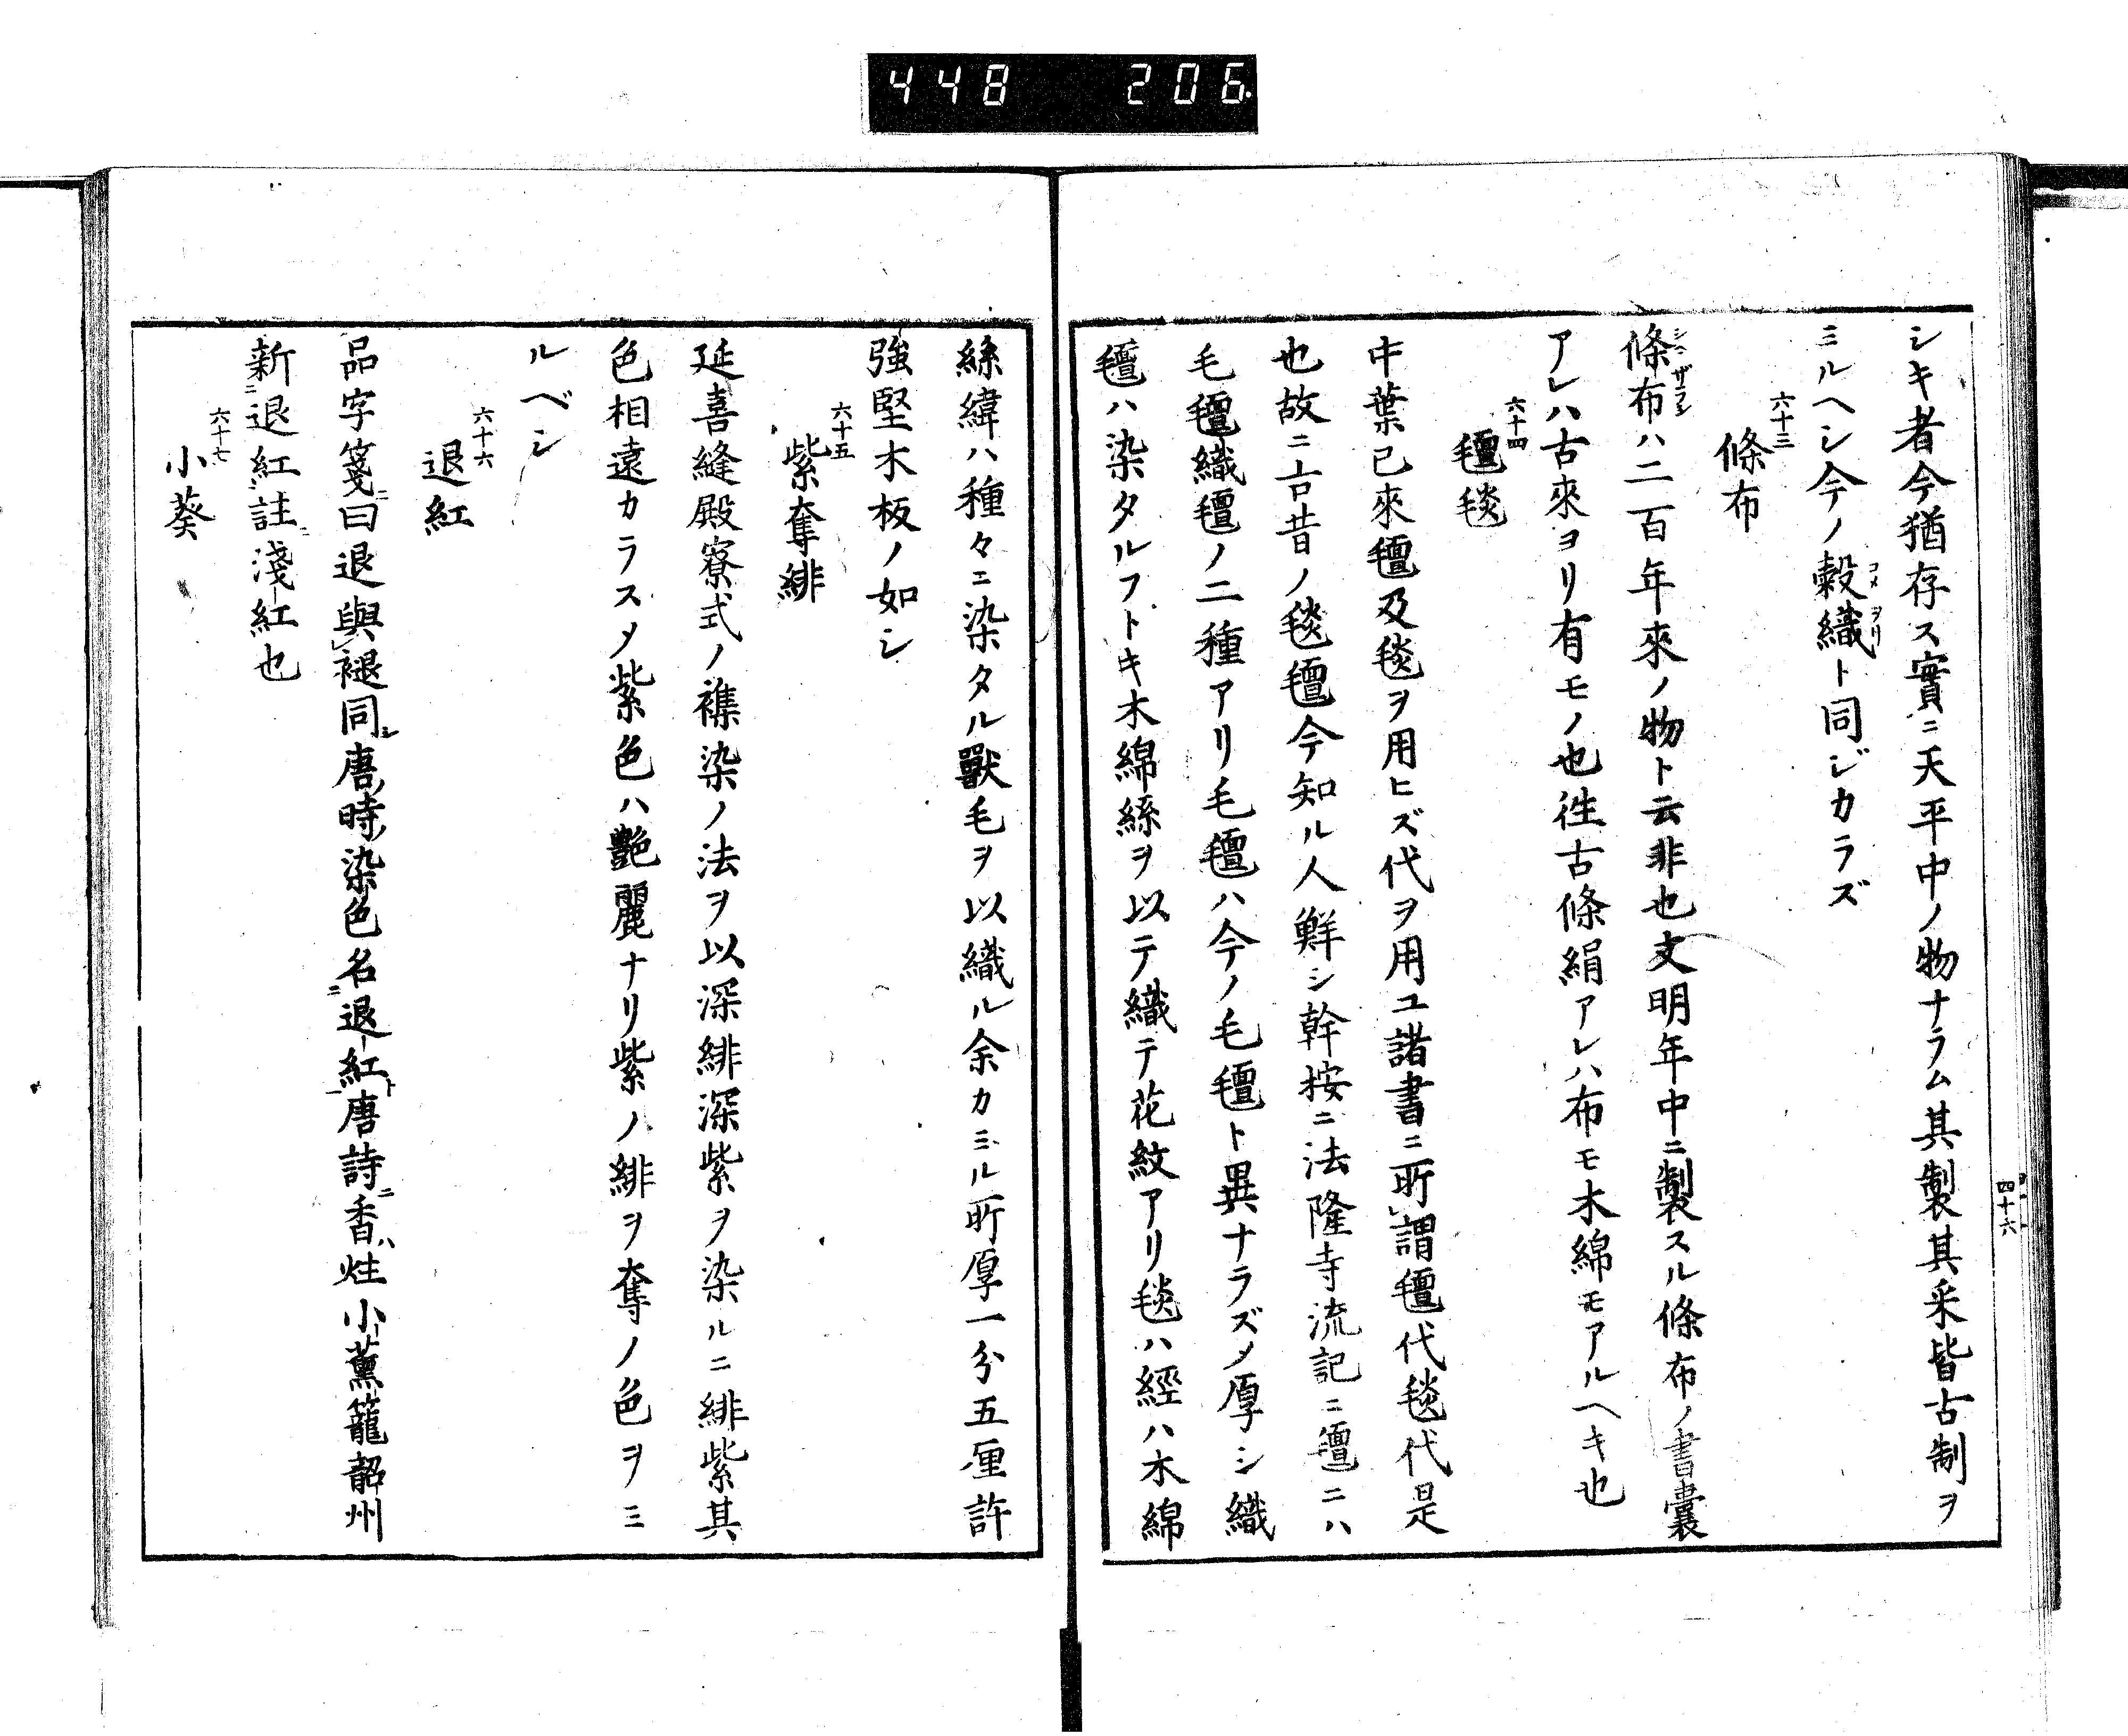 448 206
シキ者今猶存ス實ニ天平中ノ物ナラム其製其采皆古制ヲ
ミルヘシ今ノ縠織ト同ジカラズ
コメヲリ
六十三
條布
條布ハ二百年來ノ物ト云非也文明年中ニ製スル條布ノ書囊
アレハ古來ヨリ有モノ也徃古條絹アレハ布モ木綿モアルヘキ也
六十四
氊毯
中葉已來氊及毯ヲ用ヒズ代ヲ用ユ諸書ニ所謂氊代毯代是
也故ニ古昔ノ毯氊今知ル人鮮シ幹桉ニ法隆寺流記ニ氊ニハ
毛氊織氊ノ二種アリ毛氊ハ今ノ毛氊ト異ナラズメ厚シ織
氊ハ染タルフトキ木綿絲ヲ以テ織テ花紋アリ毯ハ經ハ木綿
四十六
絲緯ハ種々ニ染タル獸毛ヲ以織ル余カミル所厚一分五厘許
強堅木板ノ如シ
六十五
紫奪緋
延喜縫殿寮式ノ襍染ノ法ヲ以深緋深紫ヲ染ルニ緋紫其
色相遠カラスメ紫色ハ艶麗ナリ紫ノ緋ヲ奪ノ色ヲミ
ルベシ
六十六
退紅
品字箋曰退與褪同唐時染色名退紅唐詩香炷小薰籠韶州
新退紅註淺紅也
六十七
小葵